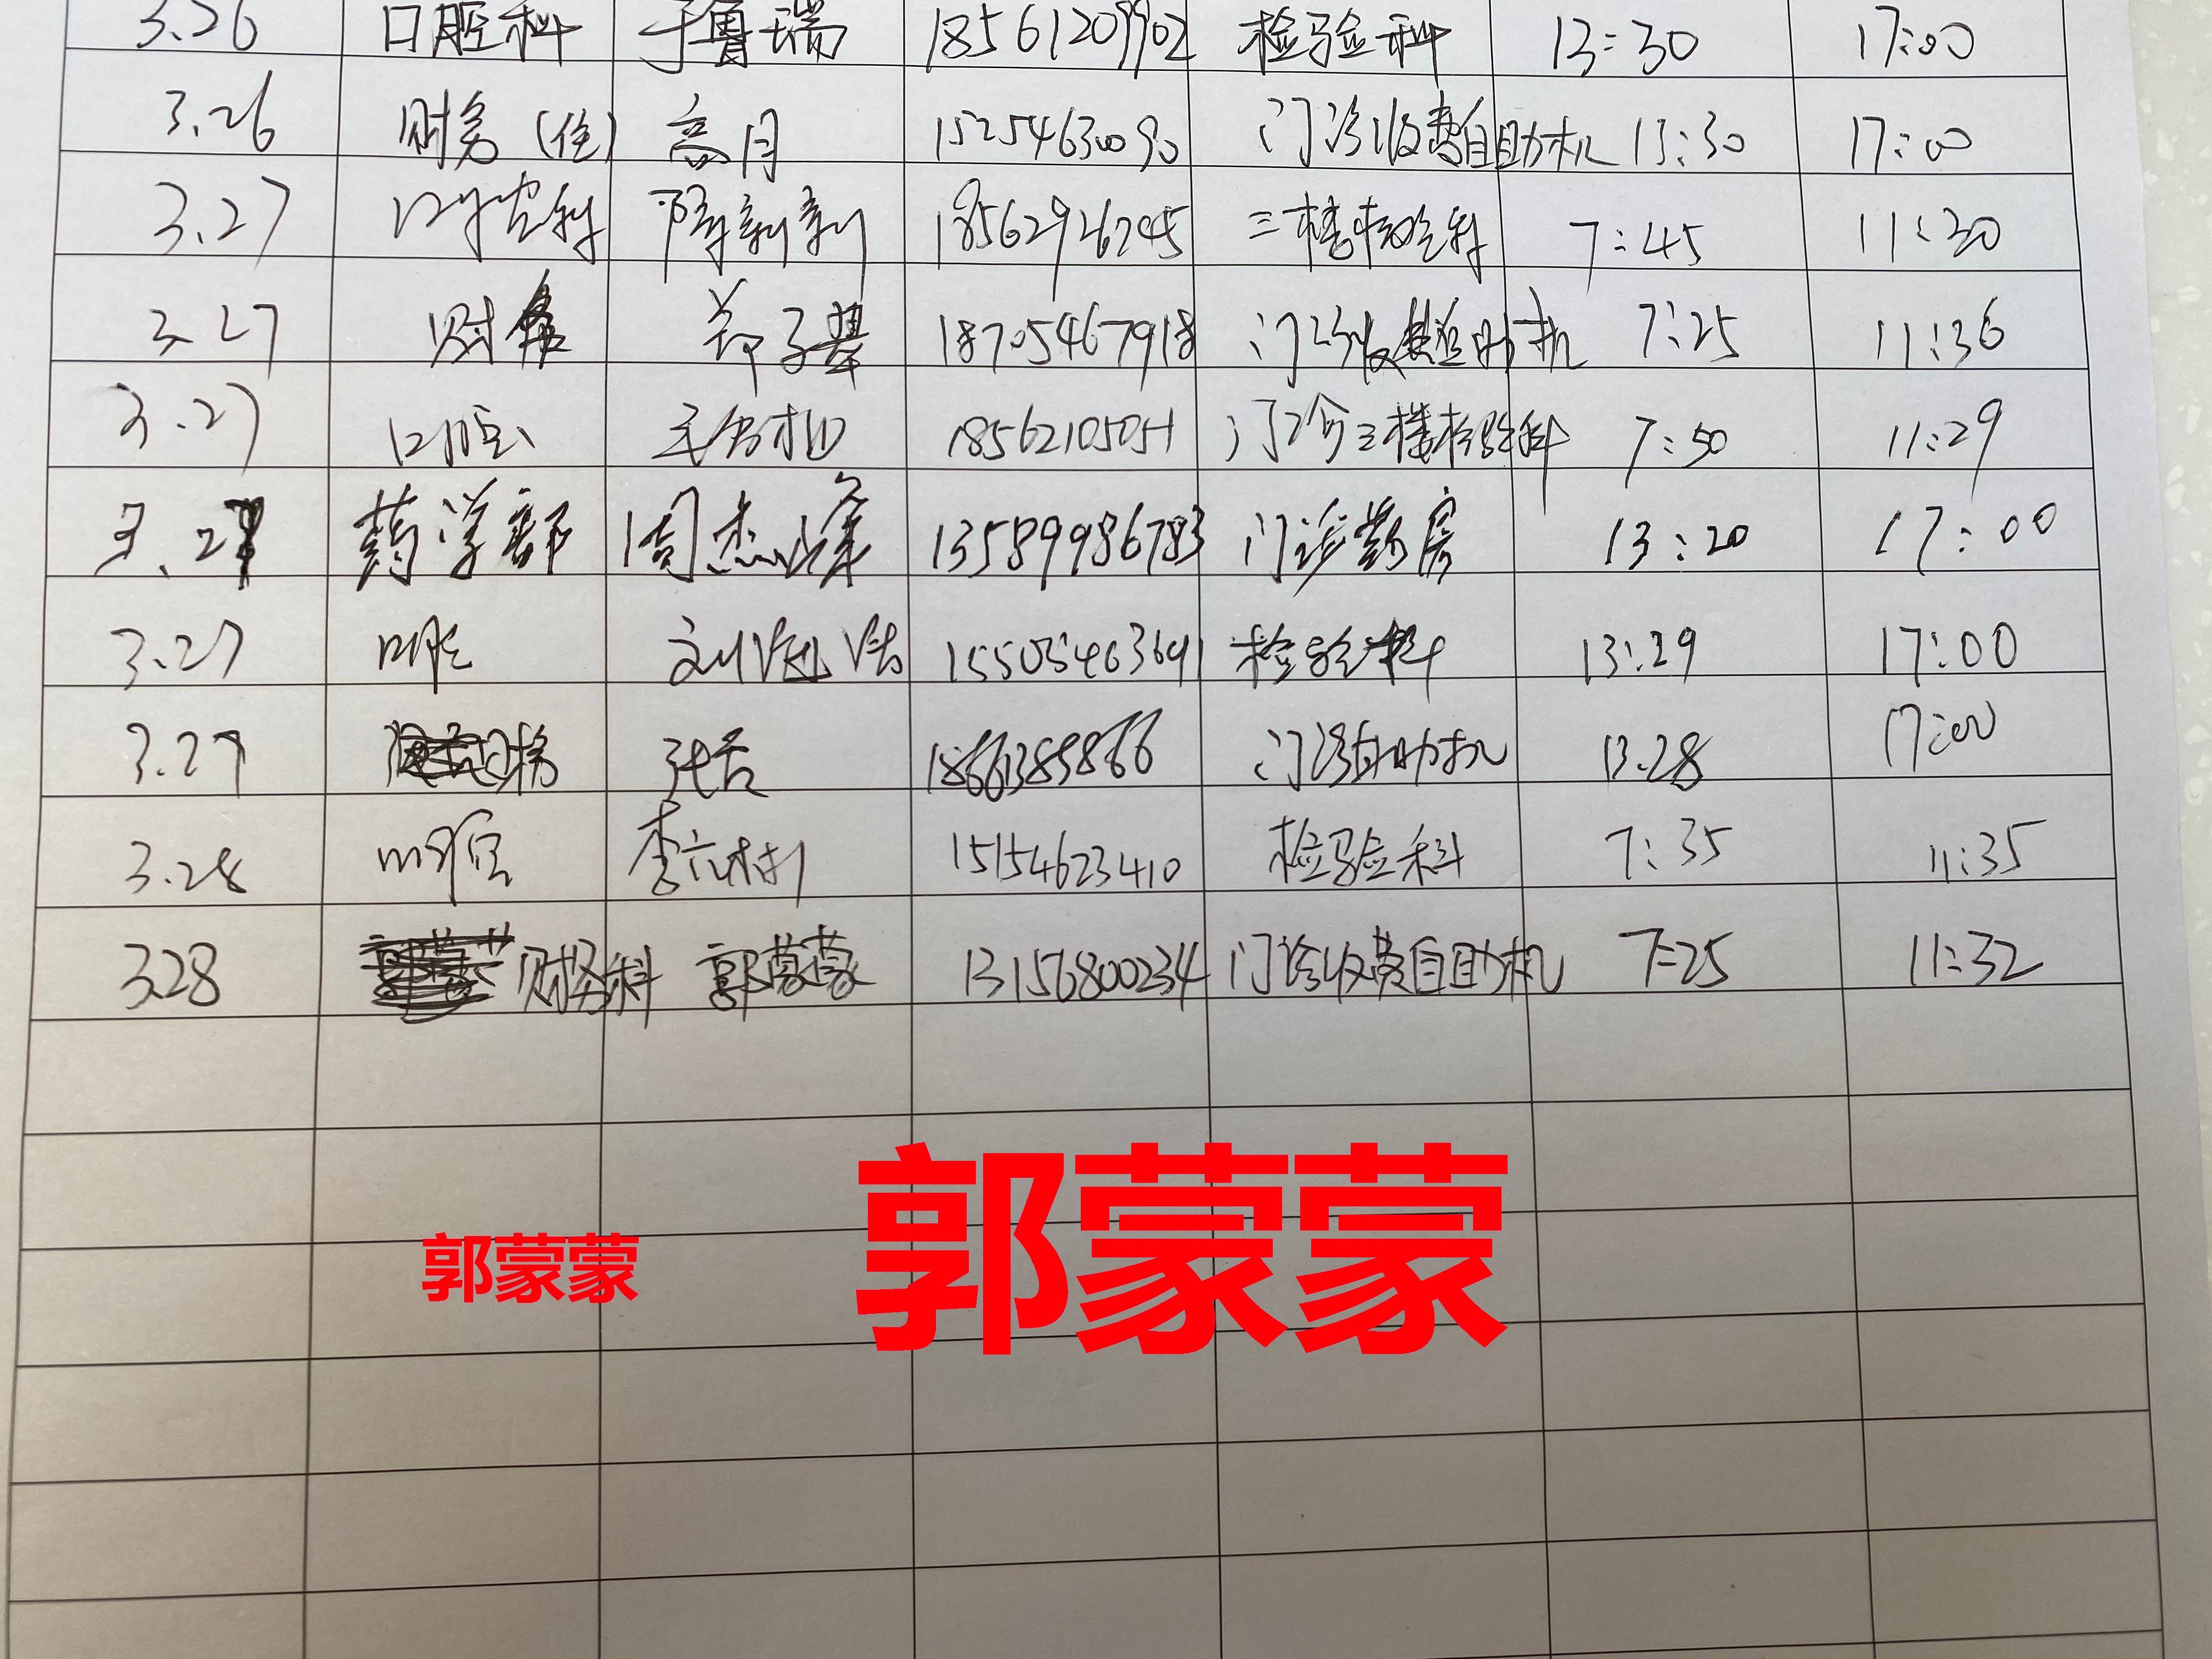 3.26 口腔科 于鲁瑞 18561209902 检验科 13:30 17:00
3.26 财务(住) 高月 15254630090 门诊收费自助机 13:30 17:00
3.27 口腔科 陈新新 18562926745 三楼检验科 7:45 11:30
3.27 财务 郑子琴 18705467918 门诊收费自助机 7:25 11:36
3.27 口腔 18562105051 门诊三楼检验科 7:50 11:29
3.27 药学部 周杰峰 13589986783 门诊药房 13:20 17:00
3.27 口腔 15505463691 检验科 13:29 17:00
3.27 财务 门诊自助机 13:28 17:00
3.28 口腔 15154623410 检验科 7:35 11:35
3.28 财务科 郭蒙蒙 13156800234 门诊收费自助机 7:25 11:32
郭蒙蒙
郭蒙蒙